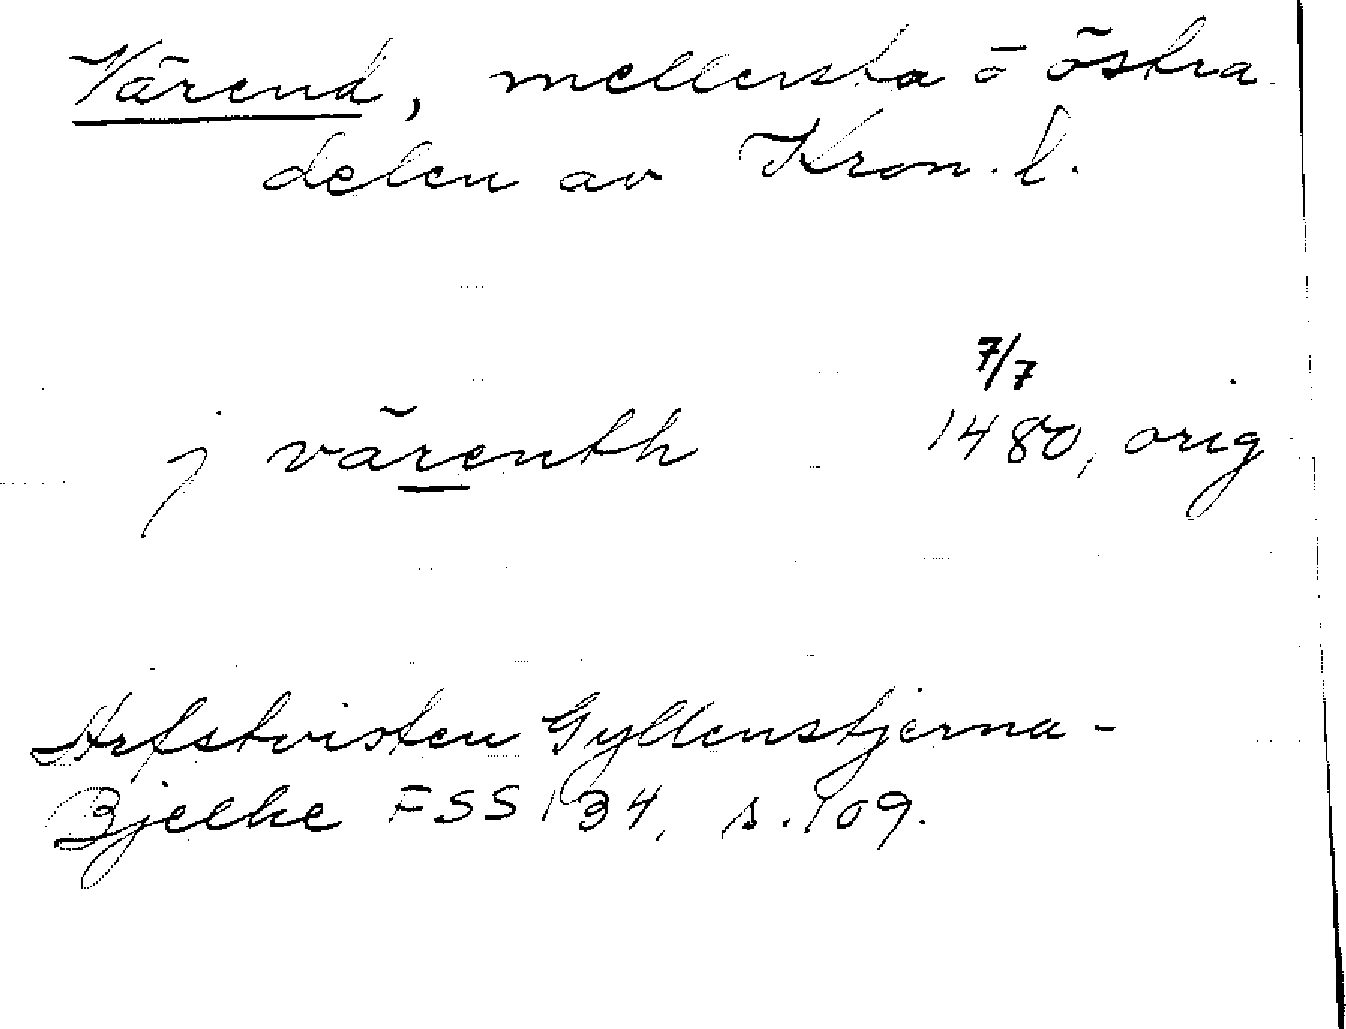 Värend, mellersta o östra
delen av Kron. l.
7/7
j värenth 1480, orig
Arfstvisten Gyllenstjerna-
Bjelke FSS 134, s. 109.